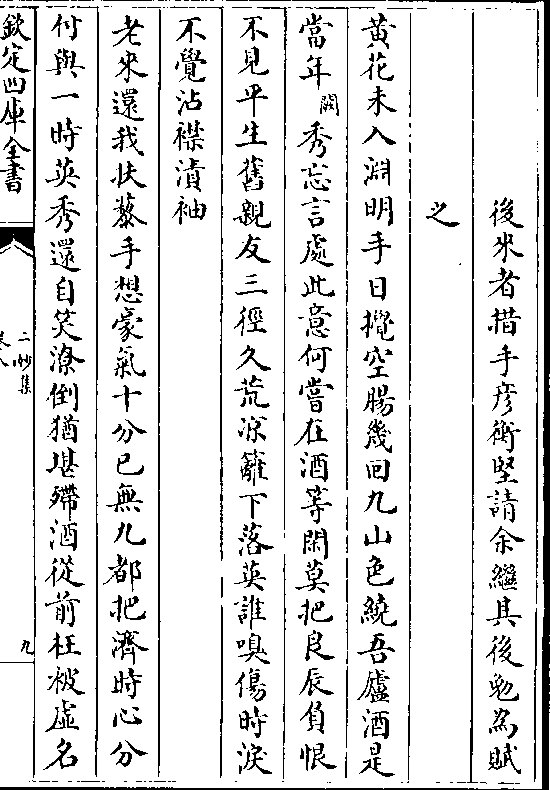 後來者措手彦衡堅請余繼其後勉為賦
之
黄花未入淵明手日攪空腸幾回九山色繞吾廬酒是
當年闕秀忘言處此意何嘗在酒等閑莫把良辰負恨
不見平生舊親友三徑久荒凉籬下落英誰嗅傷時淚
不覺沾襟漬袖
老來還我扶藜手想豪氣十分已無九都把濟時心分
付與一時英秀還自笑潦倒猶堪殢酒從前枉被虚名
欽定四庫全書
二妙集
卷八
九